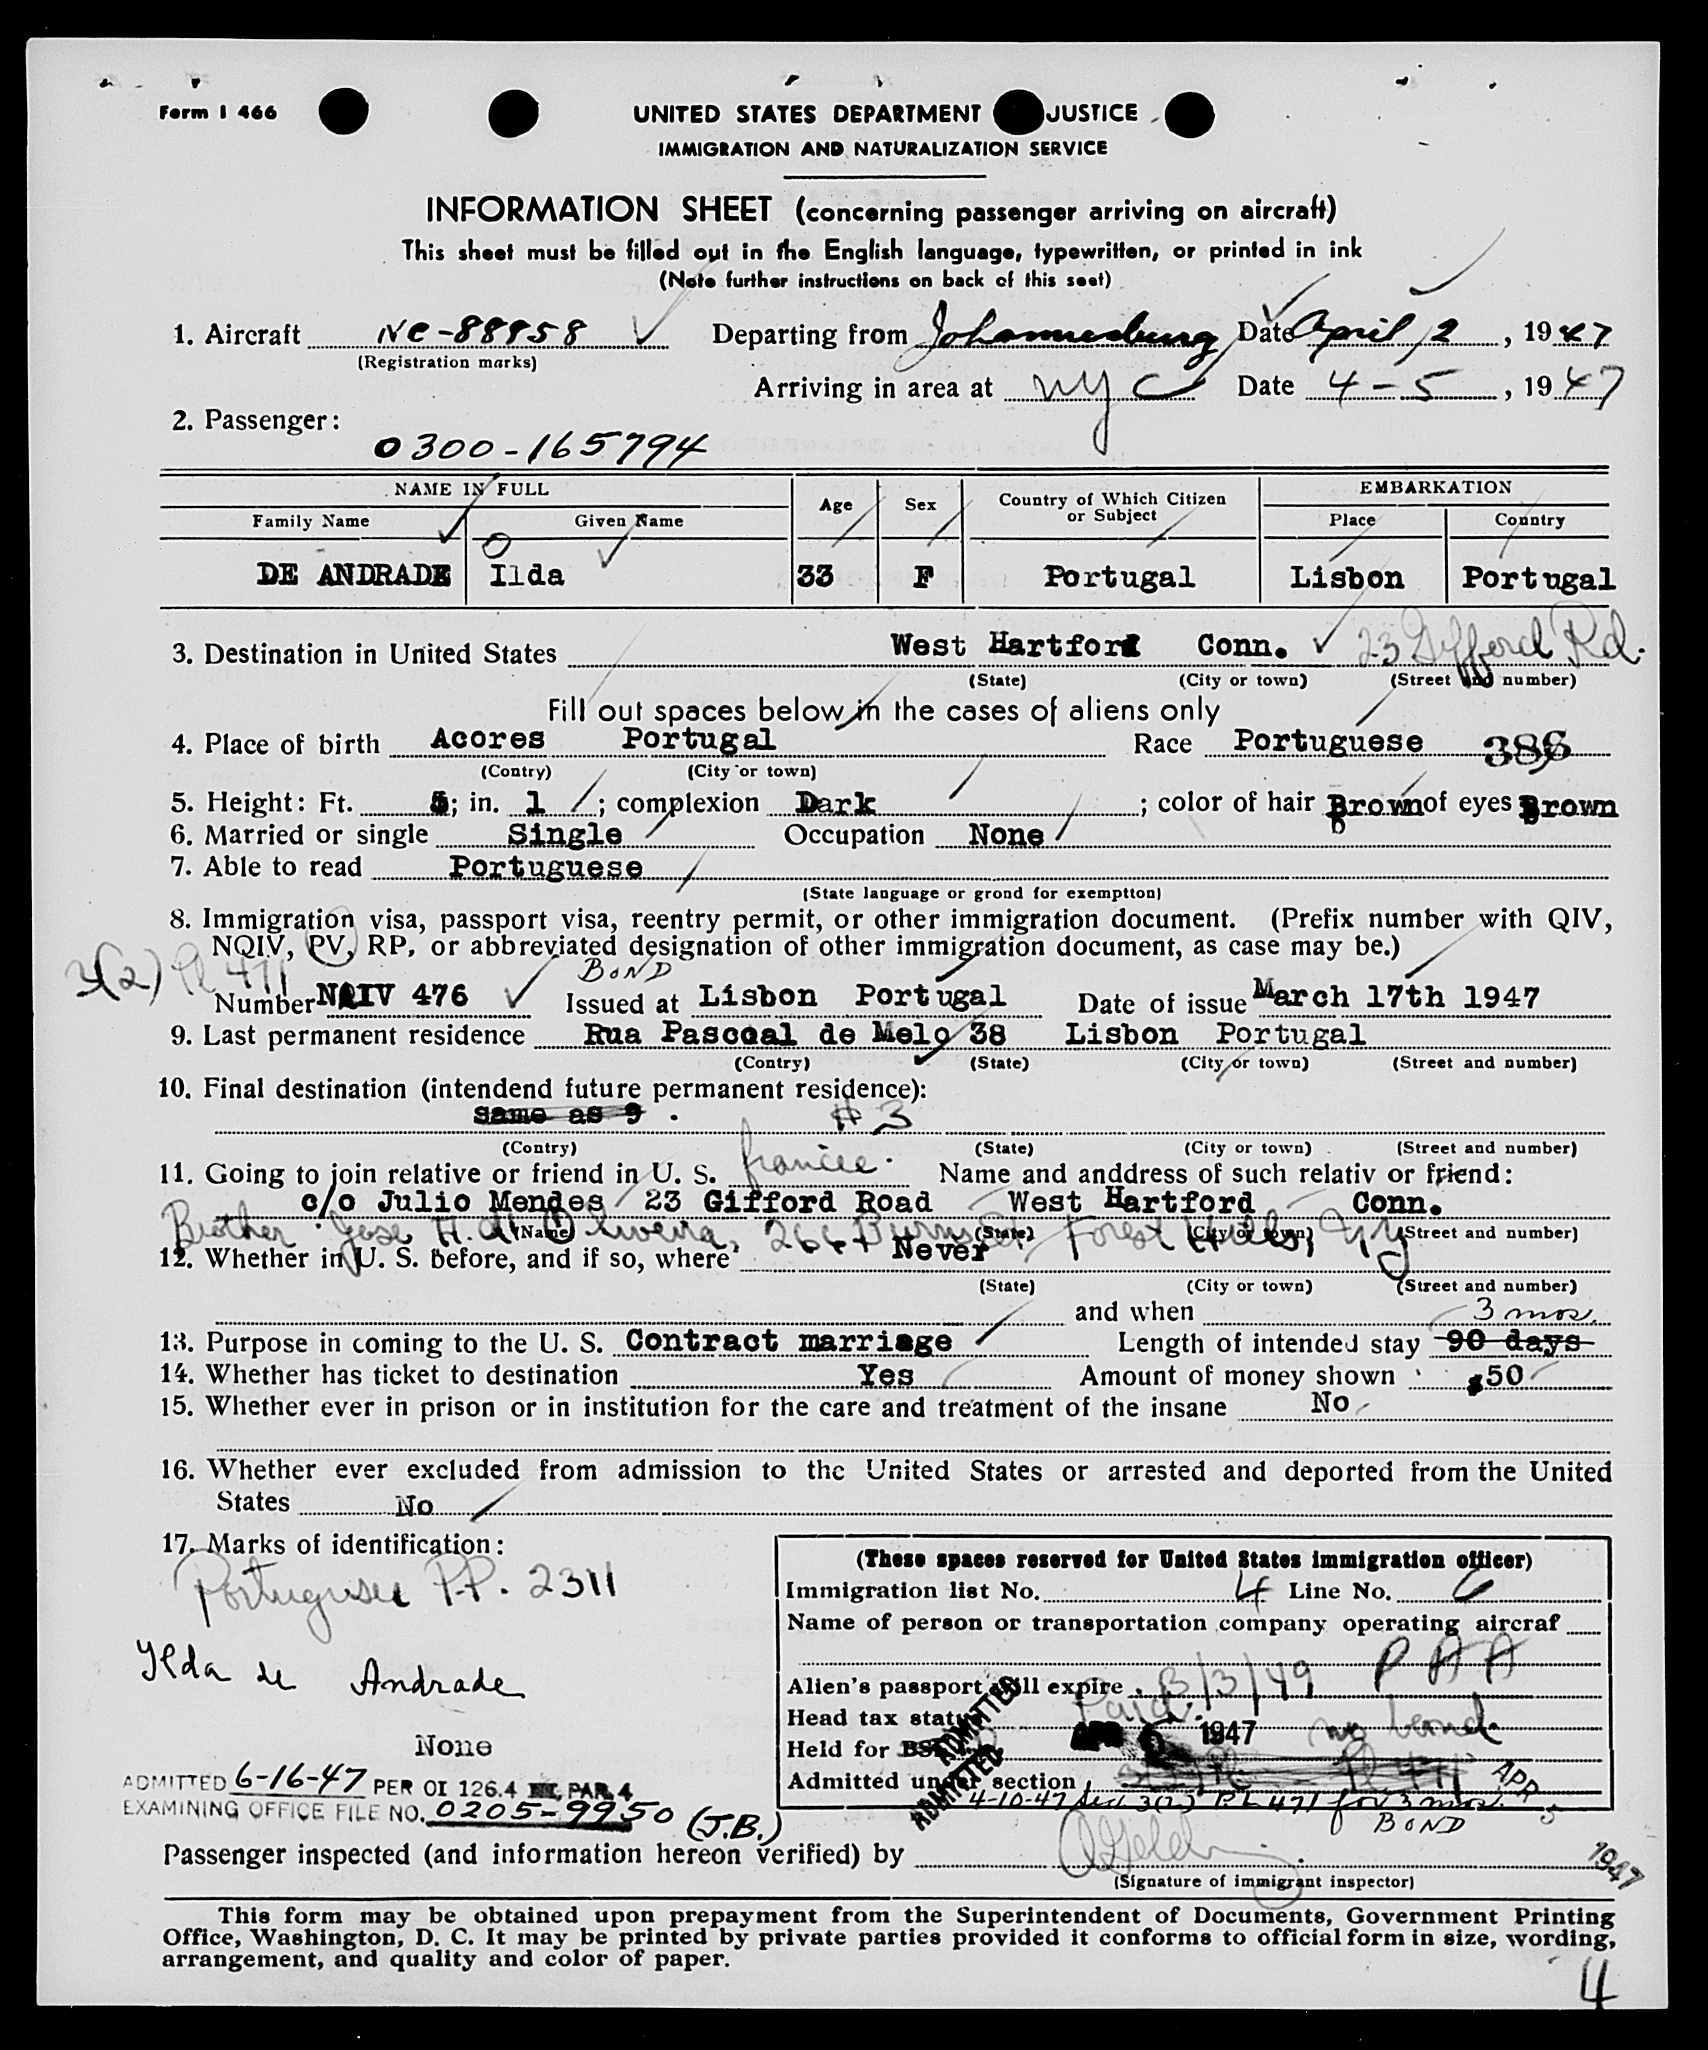 Form I 466
UNITED STATES DEPARTMENT JUSTICE
IMMIGRATION AND NATURALIZATION SERVICE
INFORMATION SHEET (concerning passenger arriving on aircraft)
This sheet must be filled out in the English language, typewritten, or printed in ink
(Note further instructions on back of this seet)
1. Aircraft NC-88858 Departing from Johannesburg Date April 2, 1947
(Registration marks)
Arriving in area at NYC Date 4-5, 1947
2. Passenger:
0300-165794
NAME IN FULL Age Sex Country of Which Citizen or Subject EMBARKATION
Family Name Given Name Place Country
DE ANDRADE Ilda 33 F Portugal Lisbon Portugal
3. Destination in United States West Hartford Conn. 23 Gifford Rd.
(State) (City or town) (Street and number)
Fill out spaces below in the cases of aliens only
4. Place of birth Acores Portugal Race Portuguese
(Contry) (City or town)
5. Height: Ft. 5; in. 1; complexion Dark; color of hair Brown of eyes Brown
6. Married or single Single Occupation None
7. Able to read Portuguese
(State language or grond for exemptton)
8. Immigration visa, passport visa, reentry permit, or other immigration document. (Prefix number with QIV,
NQIV, PV, RP, or abbreviated designation of other immigration document, as case may be.)
3(2) PL 471 BOND
Number NQIV 476 Issued at Lisbon Portugal Date of issue March 17th 1947
9. Last permanent residence Rua Pascoal de Melo 38 Lisbon Portugal
(Contry) (State) (City or town) (Street and number)
10. Final destination (intendend future permanent residence):
same as 9 . #3
(Contry) (State) (City or town) (Street and number)
11. Going to join relative or friend in U. S. fiancee. Name and anddress of such relativ or friend:
c/o Julio Mendes 23 Gifford Road West Hartford Conn.
Brother Jose H. de Oliveira, Forest Hills, NY
(Name) (State) (City or town) (Street and number)
12. Whether in U. S. before, and if so, where Never
(State) (City or town) (Street and number)
and when
3 mos.
13. Purpose in coming to the U. S. Contract marriage Length of intended stay 90 days
14. Whether has ticket to destination Yes Amount of money shown $50
15. Whether ever in prison or in institution for the care and treatment of the insane No
16. Whether ever excluded from admission to the United States or arrested and deported from the United
States No
17. Marks of identification:
Portuguese P.P. 2311
Ilda de Andrade
None
ADMITTED 6-16-47 PER OI 126.4 PAR. 4
EXAMINING OFFICE FILE NO. 0205-9950 (J.B.)
(These spaces reserved for United States immigration officer)
Immigration list No. 4 Line No. 6
Name of person or transportation company operating aircraf
PAA
Alien's passport will expire 3/3/49
Head tax status Paid
Held for BSI APR 1947 no bond
Admitted under section
ADMITTED
ADMITTED
4-10-47 Sec 3(2) P.L 471 for 3 mos.
BOND
APR 5 1947
Passenger inspected (and information hereon verified) by
(Signature of immigrant inspector)
This form may be obtained upon prepayment from the Superintendent of Documents, Government Printing
Office, Washington, D. C. It may be printed by private parties provided it conforms to official form in size, wording,
arrangement, and quality and color of paper.
4